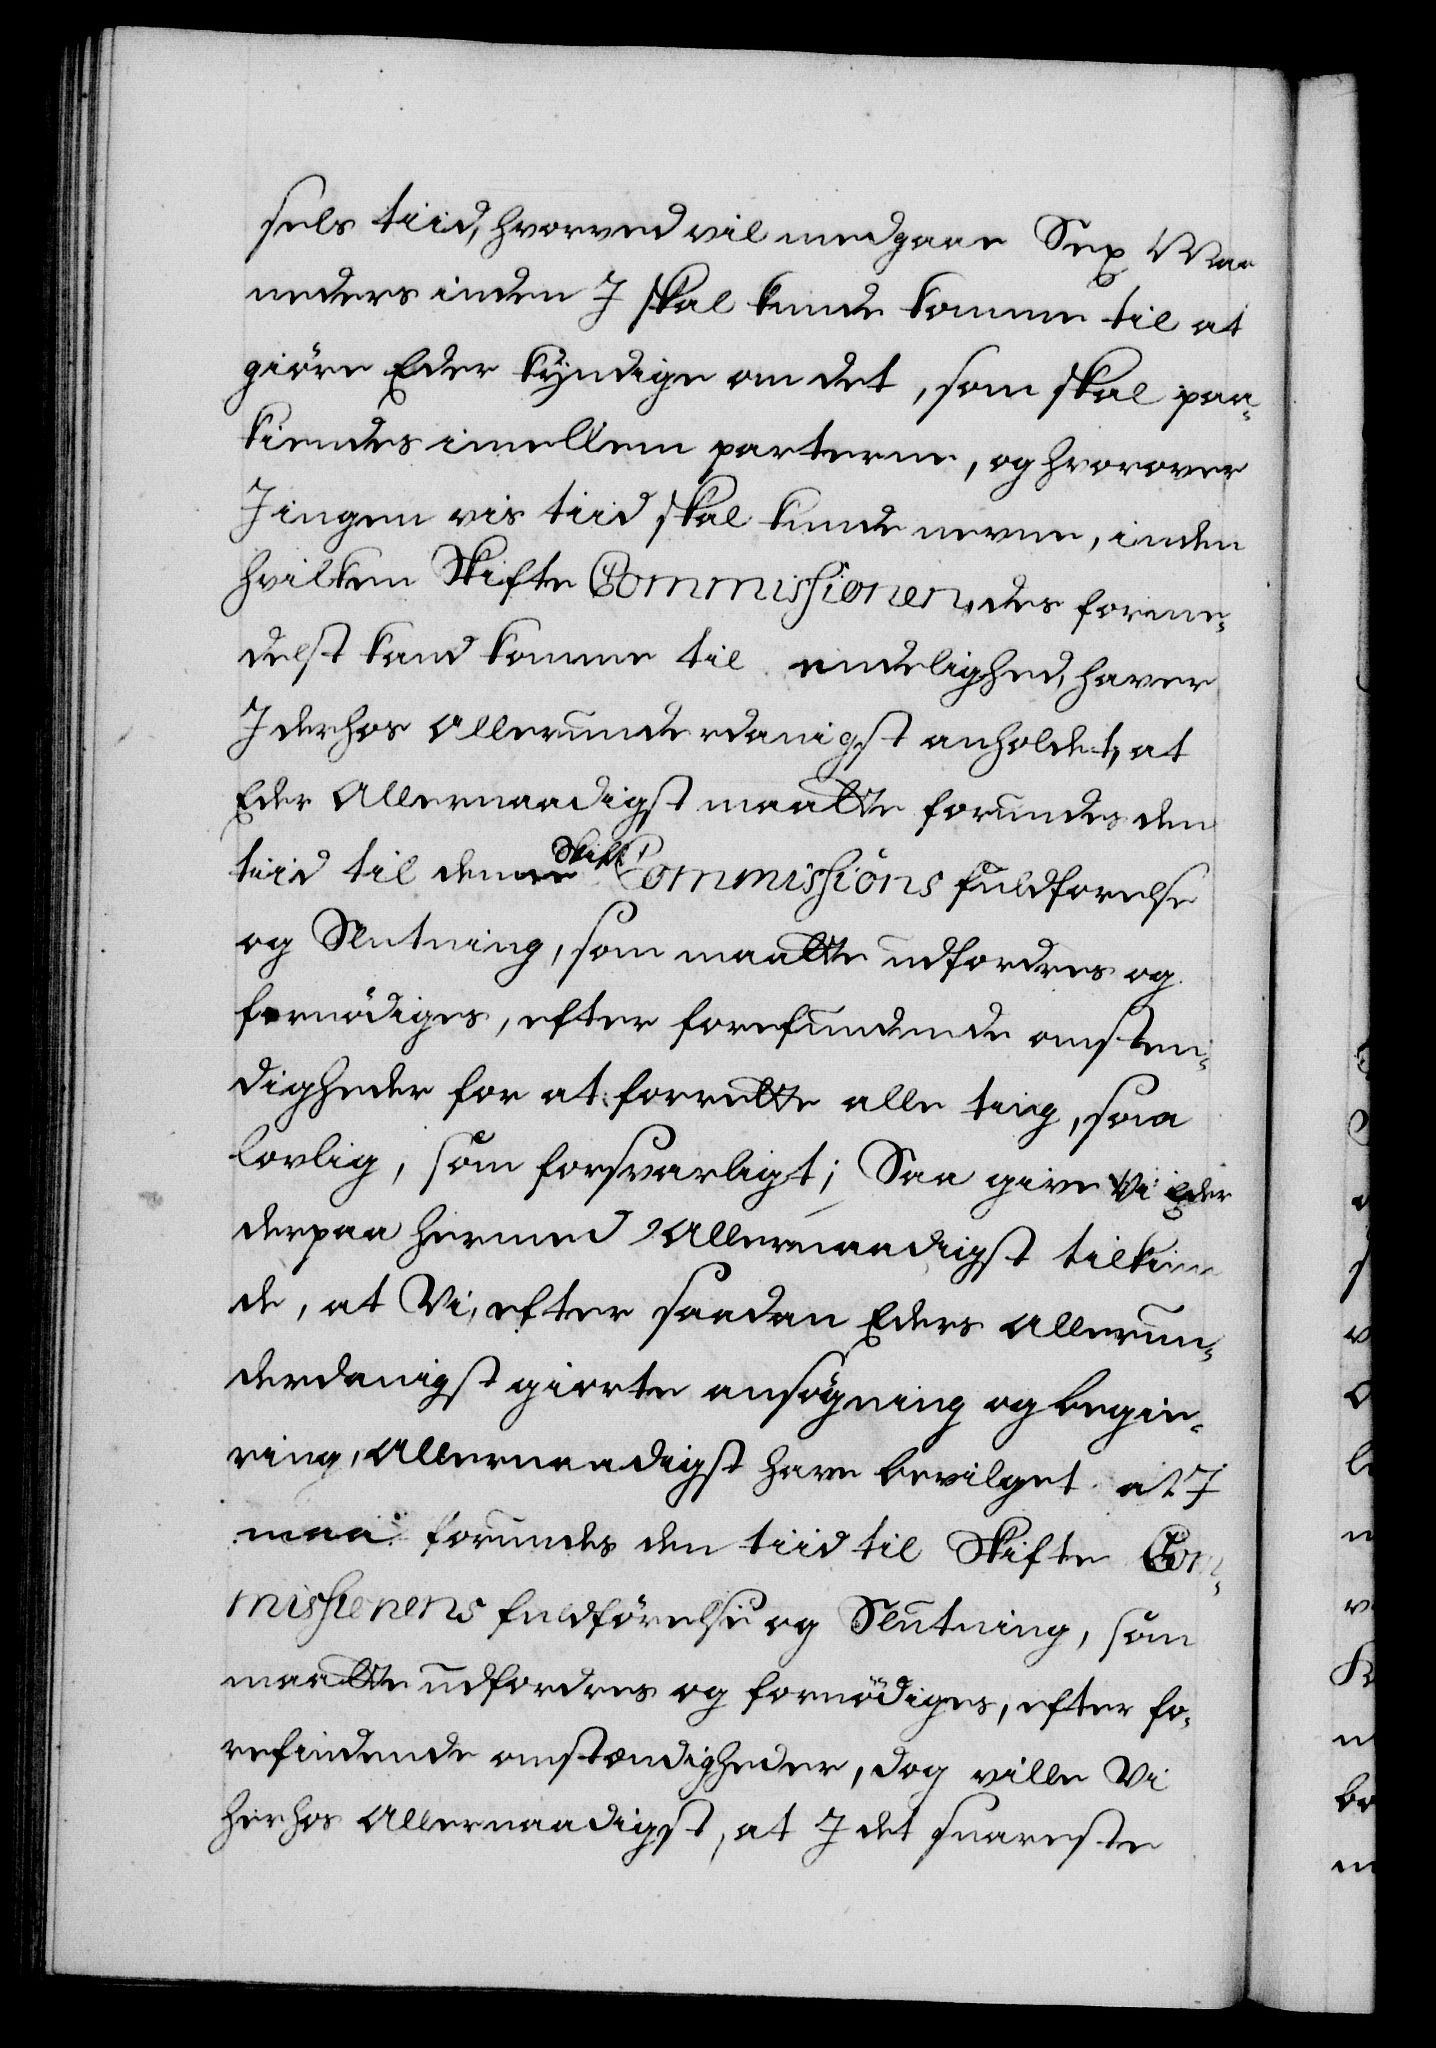 sels tiid, hvorved vil medgaae Sex Maa
neder inden I skal kunde komme til at
giöre Eder kyndige om det, som skal paa-
kiendes imellem parterne, og hvorover
I ingen vis tiid skal kunde nevne, inden
hvilken Skifte Commissionen, des forme-
delst kand komme til endelighed, haver
I derhos Allerunderdanigst anholdet, at
Eder Allernaadigst maatte forundes den
tiid til denne Skifte Commissions fuldförelse
og Slutning, som maatte udfordres og
fornödiges, efter forefundende omsten-
digheder for at forrette alle ting, saa
lovlig, som forsvarligt; Saa give Vi Eder
derpaa hermed Allernaadigst tilkien
de, at Vi, efter saadan Eders Allerun-
derdanigst giorte ansögning og begie-
ring, Allernaadigst have bevilget at I
maa forundes den tiid til Skifte Com-
missionens fuldförelse og Slutning, som
maatte udfordres og fornödiges, efter fo-
refindende omstændigheder, dog ville Vi
herhos Allernaadigst, at I det snareste